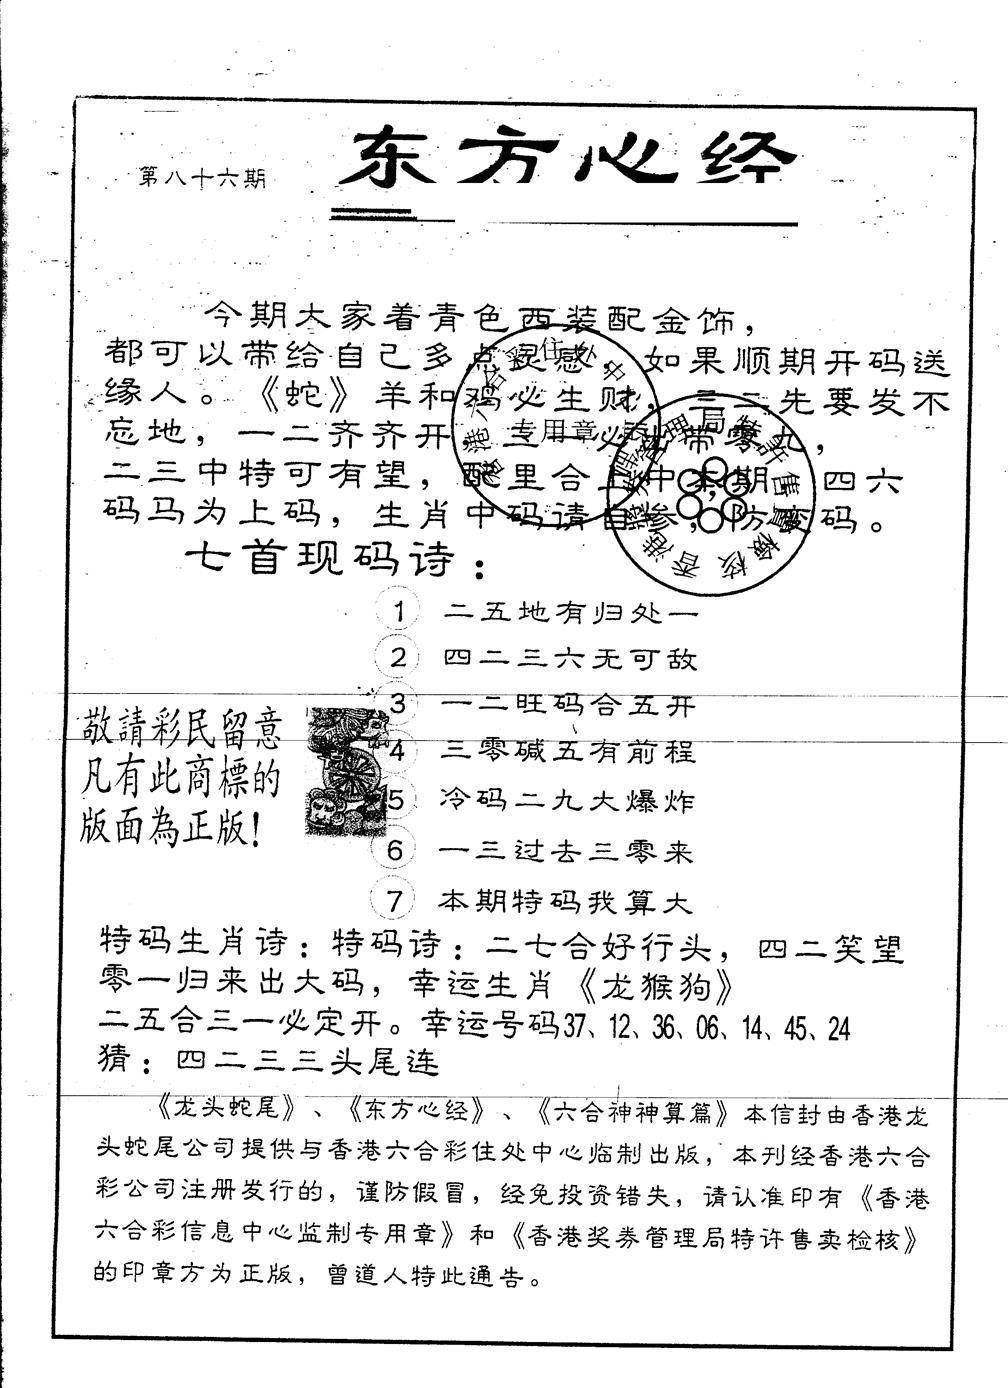 东方心经
第八十六期
今期大家着青色西装配金饰，
都可以带给自己多点灵感 如果顺期开码送
缘人。《蛇》羊和鸡必生财，三二先要发不
忘地，一二齐齐开，三一必 带零九，
二三中特可有望，配里合上中本期 四六
码马为上码，生肖中码请自 ，防 码。
七首现码诗：
1 二五地有归处一
2 四二三六无可敌
3 一二旺码合五开
4 三零碱五有前程
5 冷码二九大爆炸
6 一三过去三零来
7 本期特码我算大
敬請彩民留意
凡有此商標的
版面為正版！
特码生肖诗：特码诗：二七合好行头，四二笑望
零一归来出大码，幸运生肖《龙猴狗》
二五合三一必定开。幸运号码37、12、36、06、14、45、24
猜：四二三三头尾连
《龙头蛇尾》、《东方心经》、《六合神神算篇》本信封由香港龙
头蛇尾公司提供与香港六合彩住处中心临制出版，本刊经香港六合
彩公司注册发行的，谨防假冒，经免投资错失，请认准印有《香港
六合彩信息中心监制专用章》和《香港奖券管理局特许售卖检核》
的印章方为正版，曾道人特此通告。
专用章